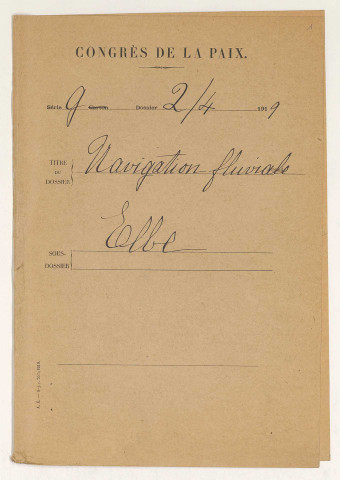 CONGRÈS DE LA PAIX.
Série G Carton Dossier 2/4 1919
TITRE DU DOSSIER Navigation fluviale
Elbe
SOUS-DOSSIER